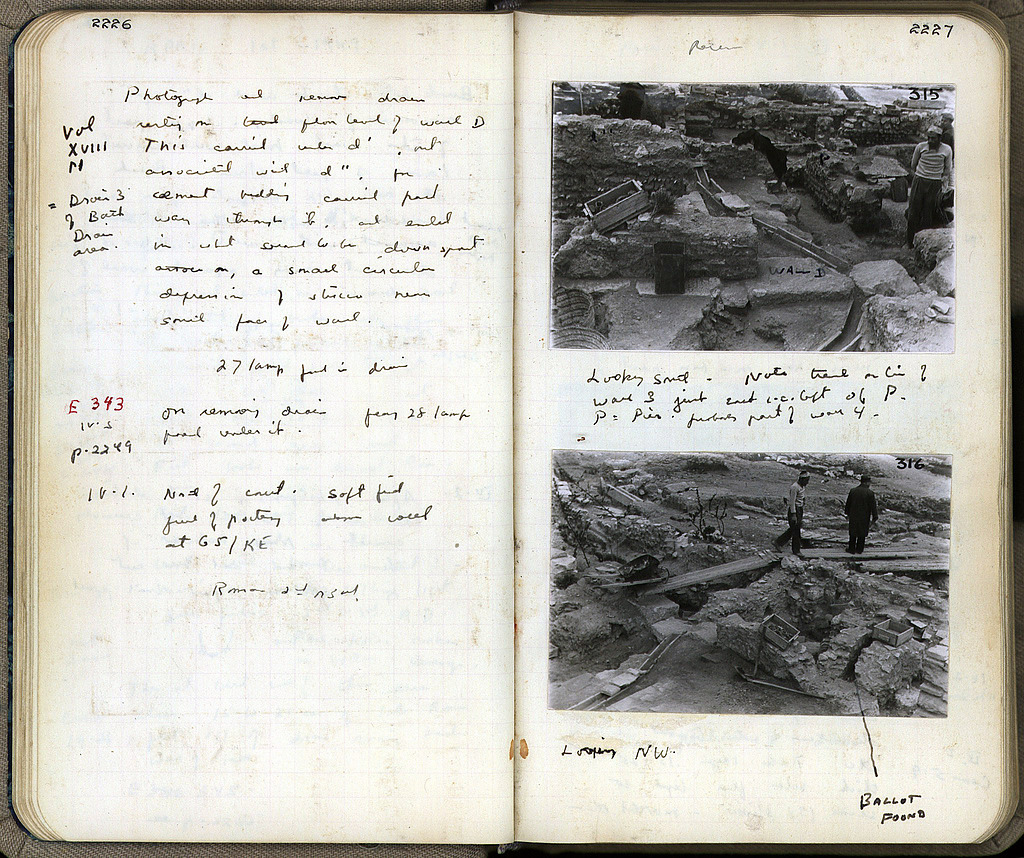 2226
Photograph and remove drain
resting on floor level of wall D
Vol
XVIII
This carried under d', and
associated with d", for
= Drain 3
of Bath
Drain
area.
cement bedding carried part
way through it, and ended
in what seemed to be down spout
a small circular
depression of stucco near
south face of wall.
27 lamp found in drain
E 343
IV-5
p. 2249
On removing drain 28 lamp
found under it.
IV-1.
North of court. Soft fill
full of pottery above
at 65/KE
Roman 2nd
2227
315
WALL D
Looking South - Note trench on line of
wall 3 just east i.e. left of P.
P = Pier. probably part of wall 4.
316
Looking NW.
BALLOT
FOUND